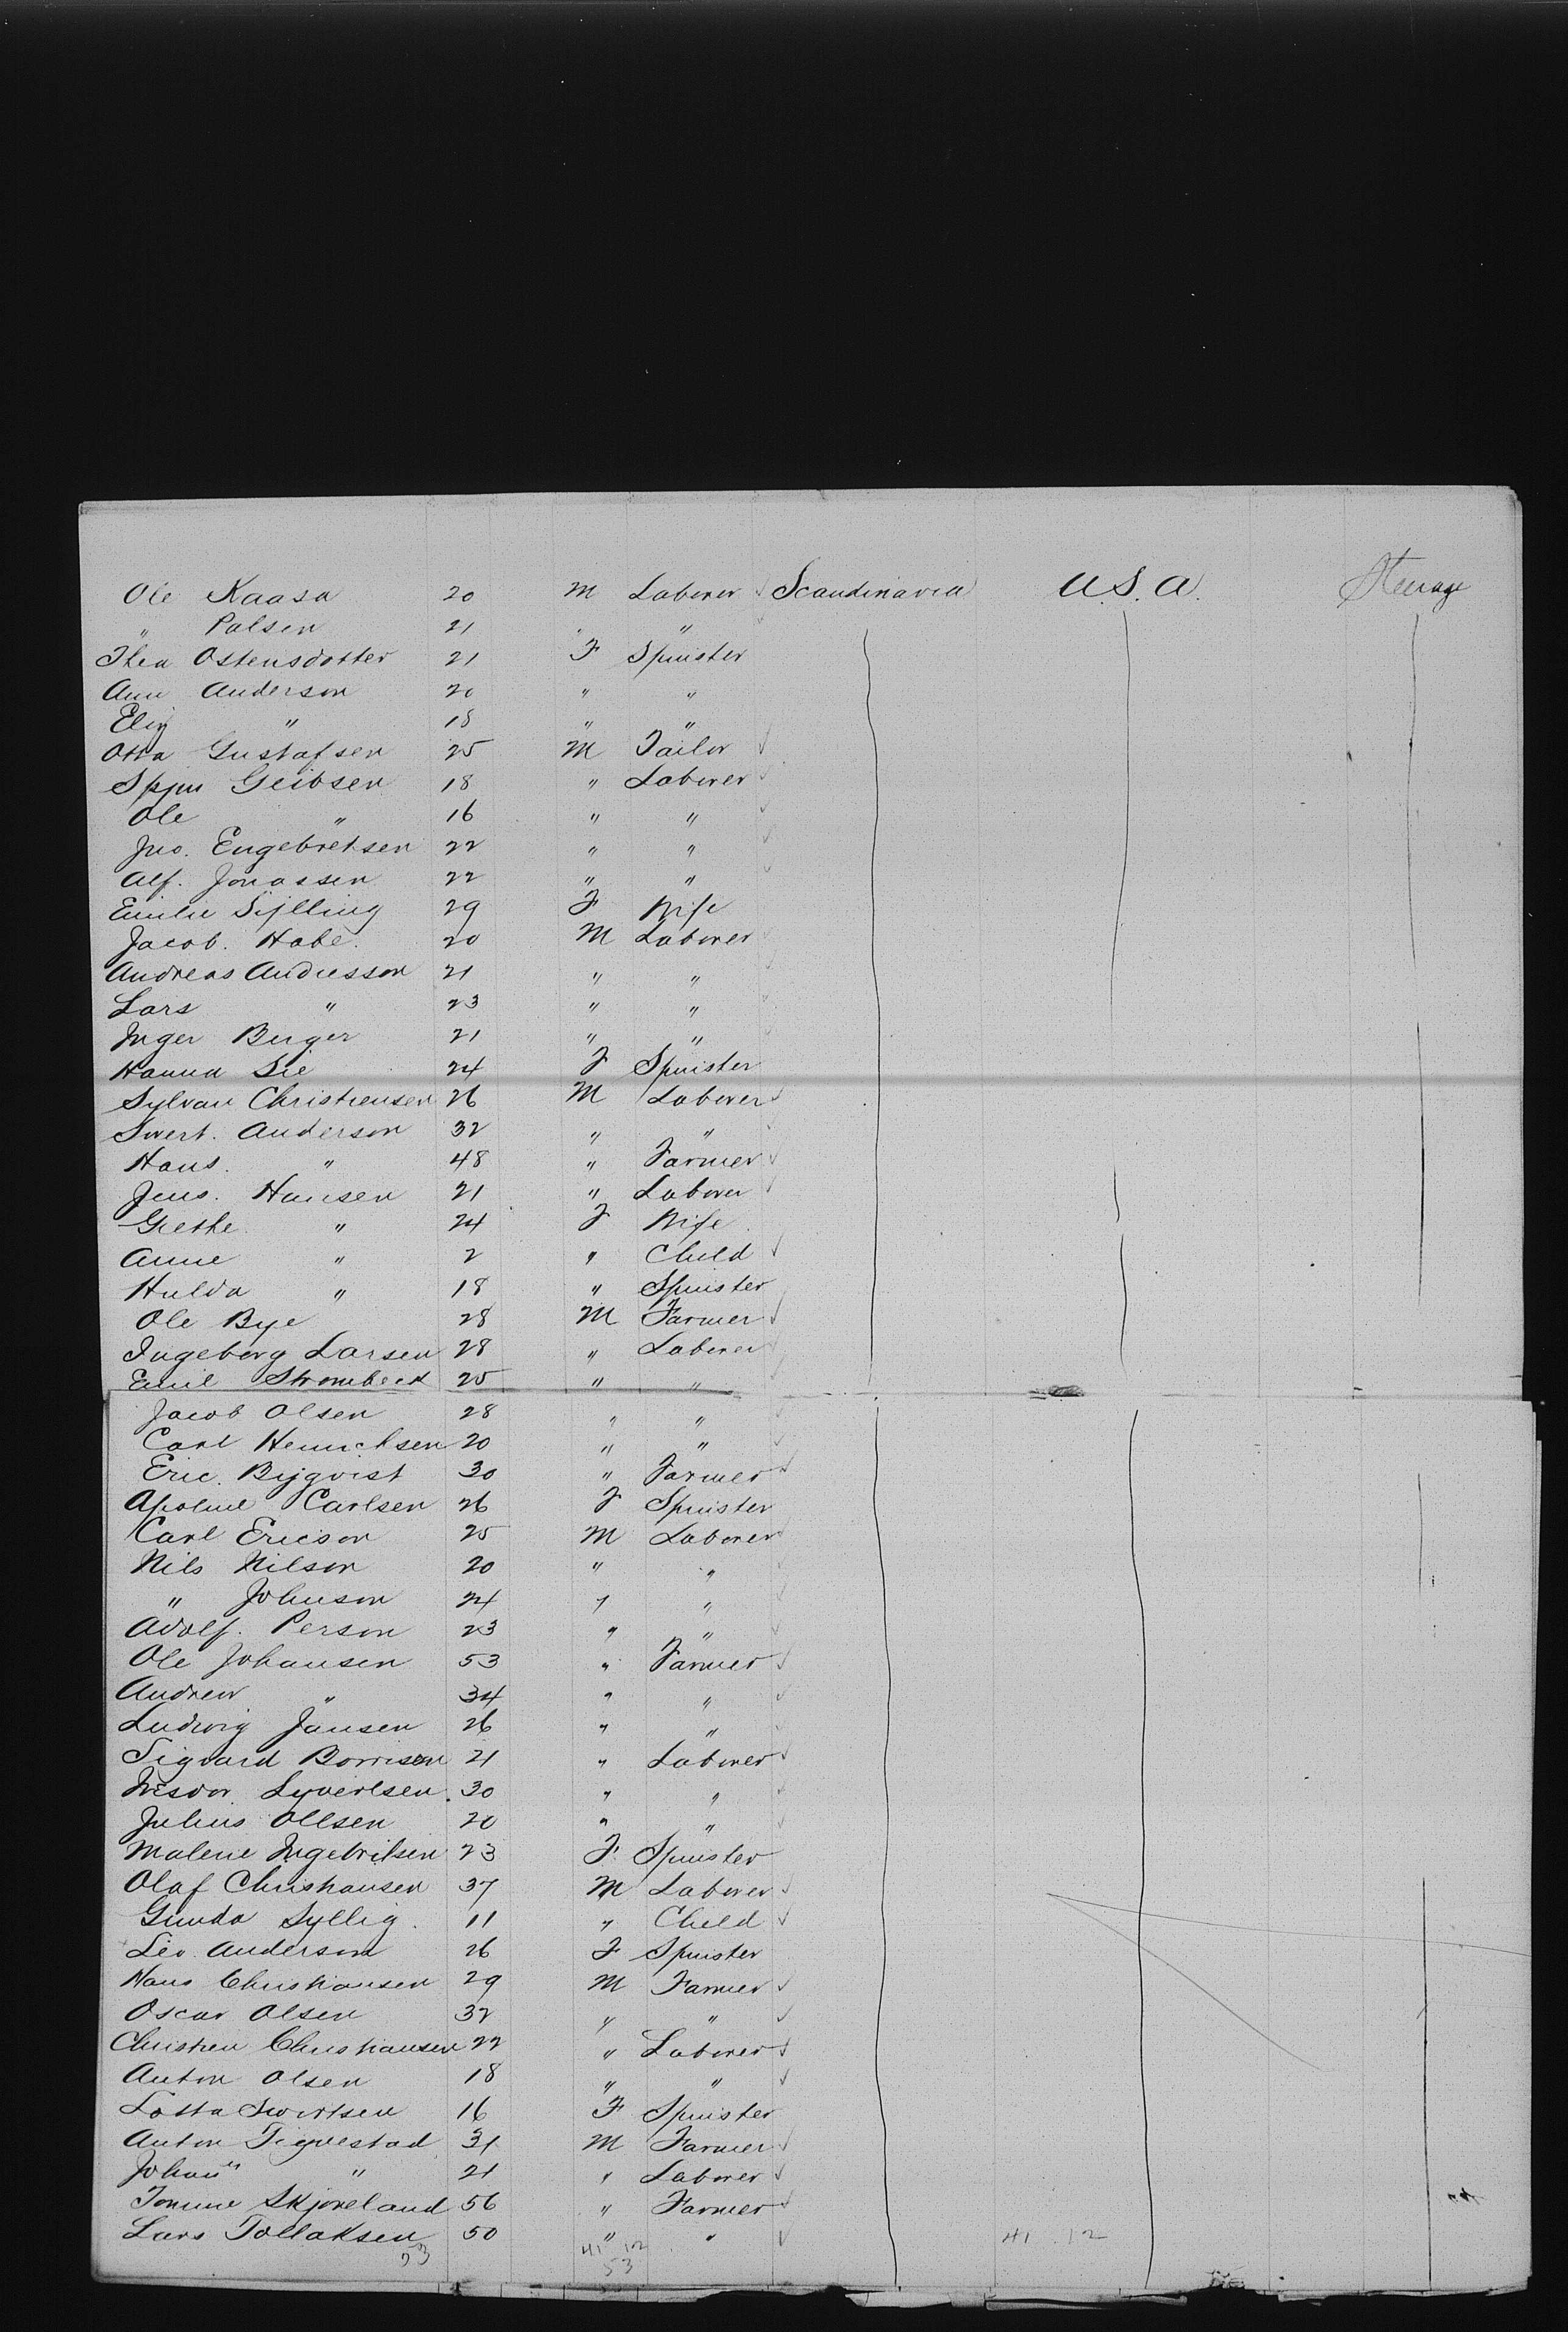 Ole Kaasa 20 M Laborer Scandinavia U.S.A. Steerage
" Palsen 21 " "
Thea Ostensdotter 21 F Spinster
Ann Anderson 20 " "
" 18 " "
Otto Gustafsen 25 M Tailor
Geibsen 18 " Laborer
Ole " 16 " "
Jno. Engebretsen 22 " "
Alf. Jonassen 22 " "
Emilie Syllling 29 F Wife
Jacob. Habe. 20 M Laborer
Andreas Andresson 21 " "
Lars " 23 " "
Inger Berger 21 " "
Hanna Lie 24 F Spinster
Sylvan Christiensen 26 M Laborer
Swert. Anderson 32 " "
Hans. " 48 " Farmer
Jens. Hansen 21 " Laborer
Grethe " 24 F Wife
Anne " 2 " Child
Hulda " 18 " Spinster
Ole Bye 28 M Farmer
Ingeborg Larsen 28 " Laborer
Emil Strombeck 25 " "
Jacob Olsen 28 " "
Carl Henricksen 20 " "
Eric. Bygqvist 30 " Farmer
Apoline Carlsen 26 F Spinster
Carl Ericson 25 M Laborer
Nils Nilson 20 " "
" Johnson 24 " "
Adolf. Person 23 " "
Ole Johansen 53 " Farmer
Andrew " 34 " "
Ludwig Jansen 26 " "
Sigvard Borrisen 21 " Laborer
Lyverlsen. 30 " "
Julius Ollsen 20 " "
Malene Ingebritsen 23 F Spinster
Olaf Christiansen 37 M Laborer
Gunda Syllig. 11 " Child
Leo Anderson 26 F Spinster
Hans Christiansen 29 M Farmer
Oscar Olsen 32 " "
Christien Christiansen 22 " Laborer
Anton Olsen 18 " "
Lotta Swertsen 16 F Spinster
Anton Tigvestad 31 M Farmer
Johan " 21 " Laborer
Tomine Skjoreland 56 " Farmer
Lars Tollaksen 50 " " 41 12
53 41 12
53